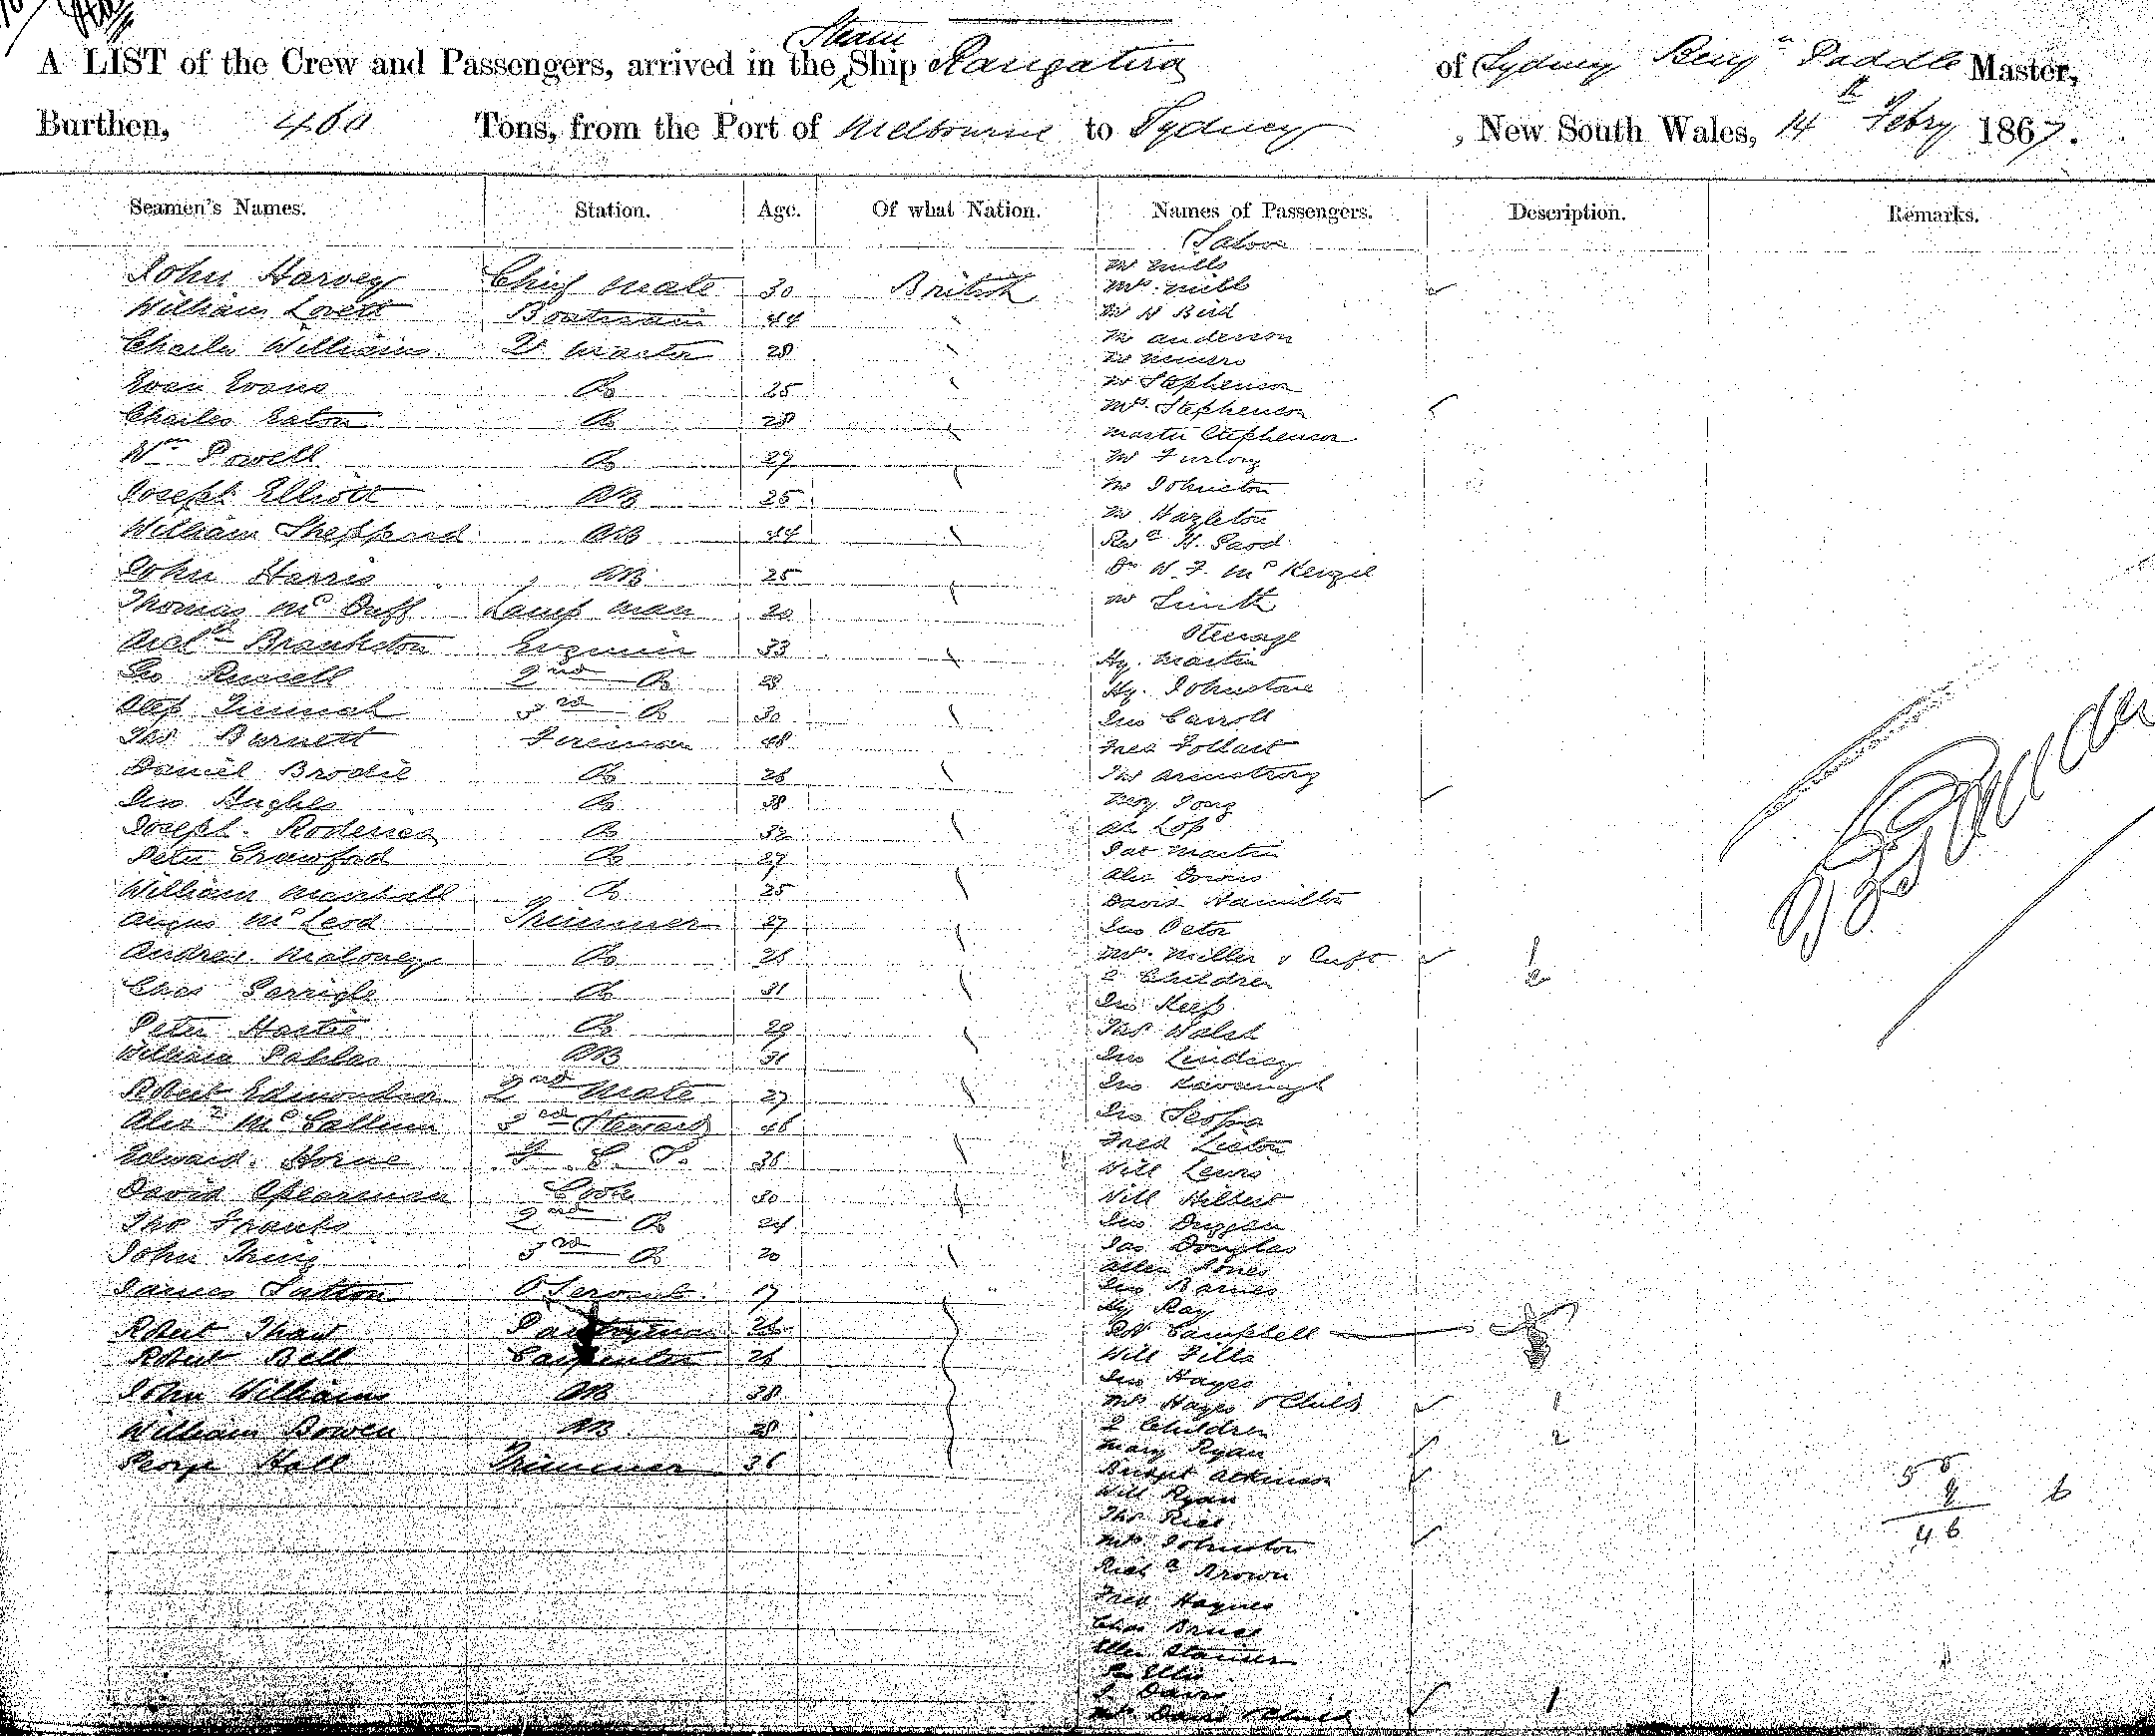 A LIST of the Crew and Passengers, arrived in the Steam Ship Rangatira of Sydney Benj n Paddle Master,
Burthen, 460 Tons, from the Port of Melbourne to Sydney, New South Wales, 14 th Febry 1867.
Seamen's Names. Station. Age. Of what Nation. Names of Passengers. Description. Remarks.
Saloon
John Harvey Chief Mate 30 British
William Lovett Boatswain 44
Charles Williams 2r Master 28
Evan Evans Do 25
Charles Eaton Do 28
Wm Powell Do 27
Joseph Elliott AB 25
William Sheppard AB 44
John Harris AB 25
Thomas McDuff Lamp man 20
Archd Brankston Engineer 33
Geo Russell 2nd Do 28
3rd Do 30
Thos Burnett Fireman 48
Daniel Brodie Do 26
Jno. Hughes Do 38
Joseph Do 32
Peter Crawford Do 27
William Marshall Do 25
Angus McLeod Trimmer 27
Andrew Maloney Do 25
Chas Do 31
Peter Hastie Do 29
William AB 31
Robert Edmondson 2nd Mate 27
Alexr McCallum 3rd Steward 46
Edward Horne F. C. S. 36
David Spearman Cook 30
Thos Franks 2nd Do 24
John 3rd Do 20
James Sutton 17
Robert Thaw Pantryman 26
Robert Bell Carpenter 26
John Williams AB 38
William Bowen AB 28
George Hall Trimmer 36
Mr Mills
Mrs. Mills
Mr H Bird
Mr Anderson
Mr Stephenson
Mrs. Stephenson
Master Stephenson
Mr Furlong
Mr Johnston
Mr Hazleton
Revd H.
Dr W. F. McKenzie
Mr Smith
Steerage
Hy. Martin
Hy. Johnstone
Jno Carroll
Fred
Thos Armstrong
Ah
Pat Martin
Alex
David Hamilton
Jno
Mrs. Miller & Inft 1
2 Children 2
Jno Keep
Thos Walsh
Jno Lindsay
Jno Kavanagh
Jno
Fred
Will Lewis
Will Hilbert
Jno Duggan
Jas Douglas
Allen Jones
Jno Barnes
Hy Ray
Robt Campbell
Will
Jno Hayes
Mrs Hayes & Child 1
2 Children 2
Mary Ryan
Bridget Atkinson
Will Ryan
Thos Rice
Mrs Johnston
Richd Brown
Fred Haynes
Chas Bruce
Ellen
Ellis
J. Davis
Mrs Davis & Child 1
46 6